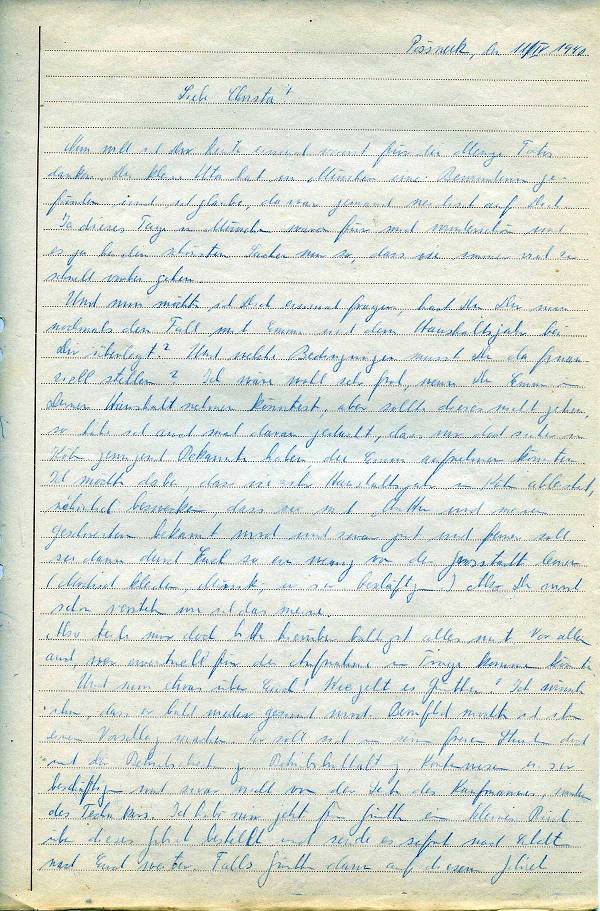 Pössneck, den 11/IV 1940
Liebe Christa!
Nun will ich Dir heute einmal zuerst für die Menge Fotos
danken, die kleine Uta hat in München eine Bewunderin ge-
funden und ich glaube, da war jemand neidisch auf Dich.
Ja dieses Tage in München waren für mich wunderschön und
es ja bei den schönsten Sachen nun so, dass sie immer viel zu
schnell vorbei gehen.
Und nun möchte ich Dich einmal fragen, hast Du Dir nun
nochmals den Fall mit Emmi und dem Haushaltsjahr bei
Dir überlegt? Und welche Bedingungen musst Du da finan-
ziell stellen? Ich wäre wohl sehr froh, wenn Du Emmi in
Deinen Haushalt nehmen könntest, aber sollte dieses nicht gehen,
so habe ich auch mal daran gedacht, dass wir doch sicher in
Köln genügend Bekannte haben die Emmi aufnehmen könnten
Ich möchte dabei, dass sie ihr Haushaltsjahr in Köln ableistet,
bezwecken dass sie mit Mutter und meinen
Geschwistern bekannt wird und zwar gut und ferner soll
sie dann durch Euch so ein wenig von der lernen
( kleiden, Musik, u sw beschäftigen) Aber Du wirst
schon verstehn wie ich das meine.
Also teile mir doch bitte hierüber baldigst alles mit. Vor allem
auch, wer eventuell für die Aufnahme in Frage kommen könnte
Und nun etwas über Euch! Wie geht es Günther? Ich wünsche
ihm, dass er bald wieder gesund wird. Beruflich möchte ich ihm
einen Vorschlag machen. Er soll sich in seinen freien Stunden doch
mit der u sw
beschäftigen und zwar nicht von der Seite des Kaufmannes, sondern
des Technikers. Ich habe nun jetzt für Günther ein kleines Buch
über dieses Gebiet bestellt und sende es sofort nach Erhalt
nach Euch weiter. Falls Günther dann auf diesem Gebiet